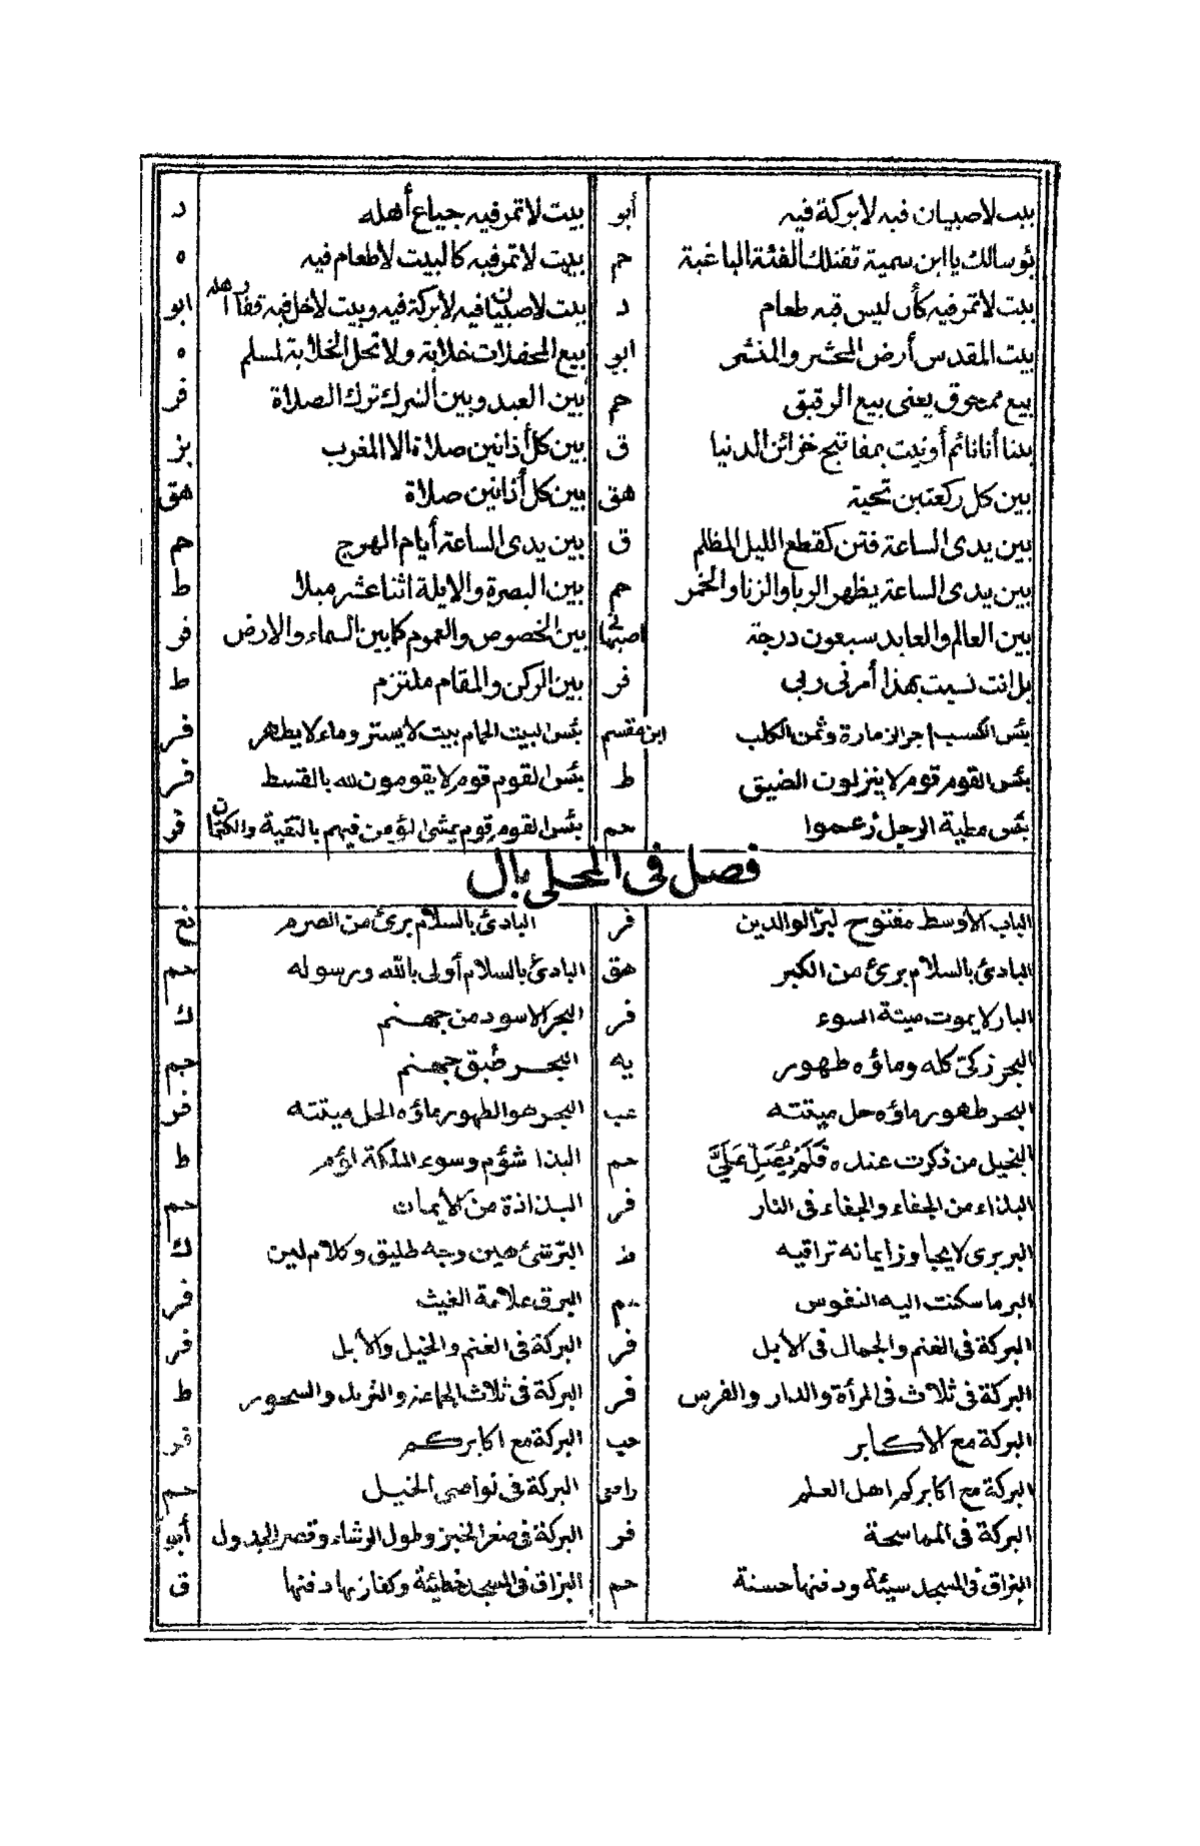 بيت لا صبيان فيه لا بركة فيه أبو بيت لا تمر فيه جياع أهله د
بؤسا لك يا ابن سمية تقتلك الفئة الباغية حم بيت لا تمر فيه كالبيت لا طعام فيه ه
بيت لا تمر فيه كأن ليس فيه طعام د بيت لا صبيان فيه لا بركة فيه وبيت لا خل فيه قفار أهله ابو
بيت المقدس أرض المحشر والمنشر أبو بيع المحفلات خلابة ولا تحل الخلابة لمسلم ه
بيع ممحوق يعنى بيع الرقيق حم بين العبد وبين الشرك ترك الصلاة فر
بينا أنا نائم أوتيت بمفاتيح خزائن الدنيا ق بين كل أذانين صلاة الا المغرب بز
بين كل ركعتين تحية هق بين كل أذانين صلاة هق
بين يدى الساعة فتن كقطع الليل المظلم ق بين يدى الساعة أيام الهرج حم
بين يدى الساعة يظهر الربا والزنا والخمر حم بين البصرة والابلة اثنا عشر ميلا ط
بين العالم والعابد سبعون درجة اصبهانى بين الخصوص والعموم كما بين السماء والارض فر
بل انت نسيت بهذا أمرنى ربى فر بين الركن والمقام ملتزم ط
بئس الكسب اجر الزمارة وثمن الكلب ابن مقسم بئس البيت الحمام بيت لا يستر وماء لا يطهر فر
بئس القوم قوم لا ينزلون الضيق ط بئس القوم قوم لا يقومون لله بالقسط فر
بئس مطية الرجل زعموا حم بئس القوم قوم يمشى المؤمن فيهم بالتقية والكتمان فر
فصل فى المحلى بال
الباب الأوسط مفتوح لبر الوالدين فر البادئ بالسلام برئ من الصرم نع
البادئ بالسلام برئ من الكبر هق البادئ بالسلام أولى بالله ورسوله حم
البار لا يموت ميتة السوء فر البحر الاسود من جهنم ك
البحر زكى كله وماؤه طهور يه البحر طبق جهنم حم
البحر طهور ماؤه حل ميتته عب البحر هو الطهور ماؤه الحل ميتته فر
البخيل من ذكرت عنده فلم يصل علىّ حم البذا شؤم وسوء الملكة لؤم ط
البذاء من الجفاء والجفاء فى النار فر البذاذة من الأيمان حم
البربرى لا يجاوز ايمانه تراقيه ط البرّ شئ هين وجه طليق وكلام لين ك
البر ما سكنت اليه النفوس حم البرق علامة الغيث فر
البركة فى الغنم والجمال فى الأبل فر البركة فى الغنم والخيل والأبل فر
البركة فى ثلاث فى المرأة والدار والفرس فر البركة فى ثلاث الجماعة والثريد والسحور ط
البركة مع الأكابر حب البركة مع اكابركم فر
البركة مع اكابركم اهل العلم رافعى البركة فى نواصى الخيل حم
البركة فى المماسحة فر البركة فى صغر الخبز وطول الرشاء وقصر الجدول أبو
البزاق فى المسجد سيئة ودفنها حسنة حم البزاق فى المسجد خطيئة وكفارتها دفنها ق